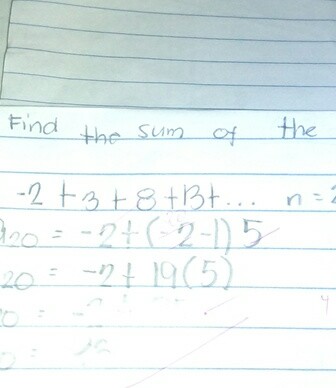 Find the sum of the
-2 + 3 + 8 + 13 + ... n =
a20 = -2 + (-2-1) 5
20 = -2 + 19(5)